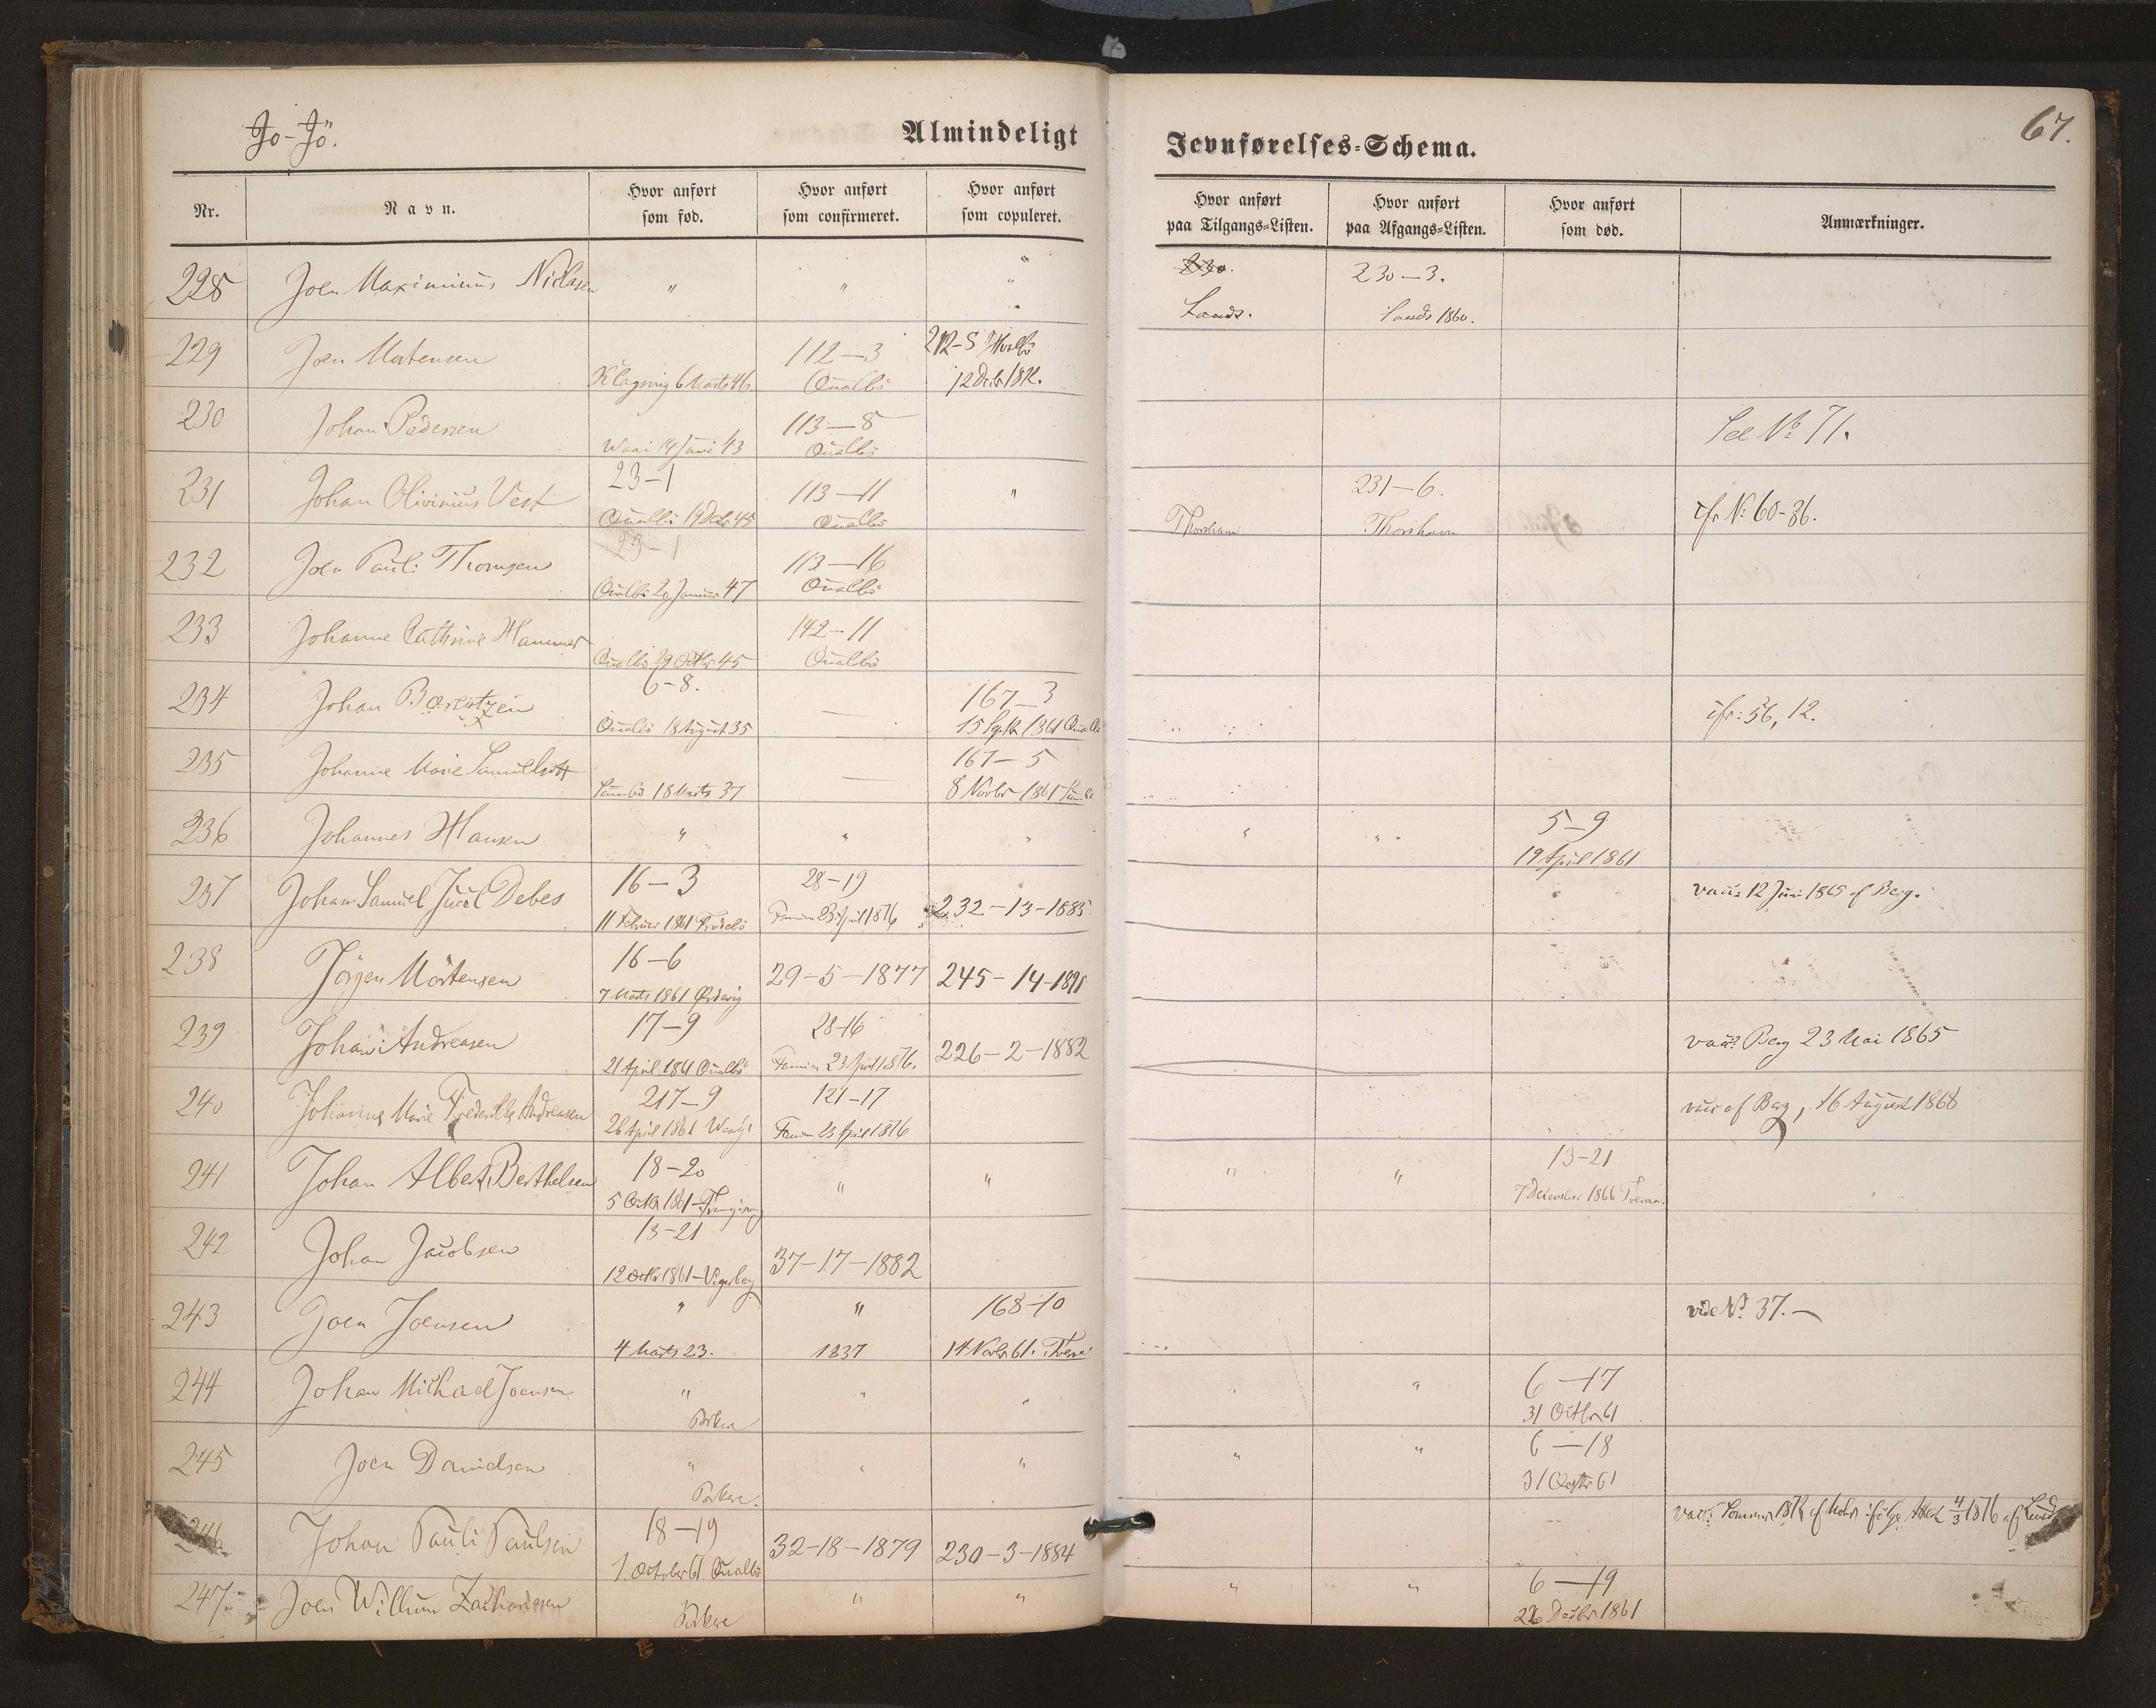 Jo-Jö.
Almindeligt
Jevnførelses-Schema.
67.
Nr.
Navn.
Hvor anført som fød.
Hvor anført som confirmeret.
Hvor anført som copuleret.
Hvor anført paa Tilgangs-Listen.
Hvor anført paa Afgangs-Listen.
Hvor anført som død.
Anmærkninger.
228 Joen Maximinus Niclasen " " " 230. 230-3.
Sands. Sands 1860.
229 Joen Mortensen 112-3 212-5 Hvalbö
6 Marts 46 Qualbö 12 Decbr 1872.
230 Johan Pedersen 113-8 See No 71.
Waai 14 Juni 43 Qualbö
231 Johan Olivinius Vest 23-1 113-11 " 231-6. cfr No 60-86.
Qualbö 19 Decbr 45 Qualbö Thorshavn Thorshavn
232 Joen Pauli Thomsen 29-1 113-16
Qualbö 20 Januar 47 Qualbö
233 Johanne Cathrine Hammer 142-11
Qualbö 29 Octbr 45 Qualbö
234 Johan Bærentzen 6-8. — 167-3 cfr: 56, 12.
Qualbö 18 August 35 15 Septbr 1861 Qualbö
235 Johanne Marie — 167-5
Sumbö 18 Marts 37 8 Novbr 1861 Sumbö
236 Johannes Hansen " " " " " 5-9
19 April 1861
237 Johan Samuel Juul Debes 16-3 28-19 232-13-1885 vacc: 12 Juni 1865 af Berg.
11 Februar 1861 Frodebö Famien 23 April 1876
238 Jörgen Mörtensen 16-6 29-5-1877 245-14-1891
7 Marts 1861 Ördevig
239 Johan Andreasen 17-9 28-16 226-2-1882 vacc: Berg 23 Mai 1865
21 April 1861 Qualbö Famien 23 April 1876.
240 Johanne Marie Frederikke Andreasen 217-9 121-17 vacc af Berg, 16 August 1868
26 April 1861 Famien 23 April 1876
241 Johan Albert Berthelsen 18-20 " " " " 13-21
5 Octbr 1861- 7 December 1866 Tveraa.
242 Johan Jacobsen 13-21 37-17-1882
12 Octbr 1861-
243 Joen Joensen " " 168-10 vide No 37.-
4 Marts 23. 1837 14 Novbr 61. Tveraa
244 Johan Michael Joensen " " " " " 6-17
Porkere 31 Octbr 61
245 Joen Danielsen " " " " " 6-18
Porkere. 31 Octbr 61
246 Johan Pauli Paulsen 18-19 32-18-1879 230-3-1884 vacc: Sommer af ifölge Att 4/3 1876 af
1. October 61. Qualbö
247. Joen Willum Zachariasen " " " " 6-19
Porkere 26 Decbr 1861